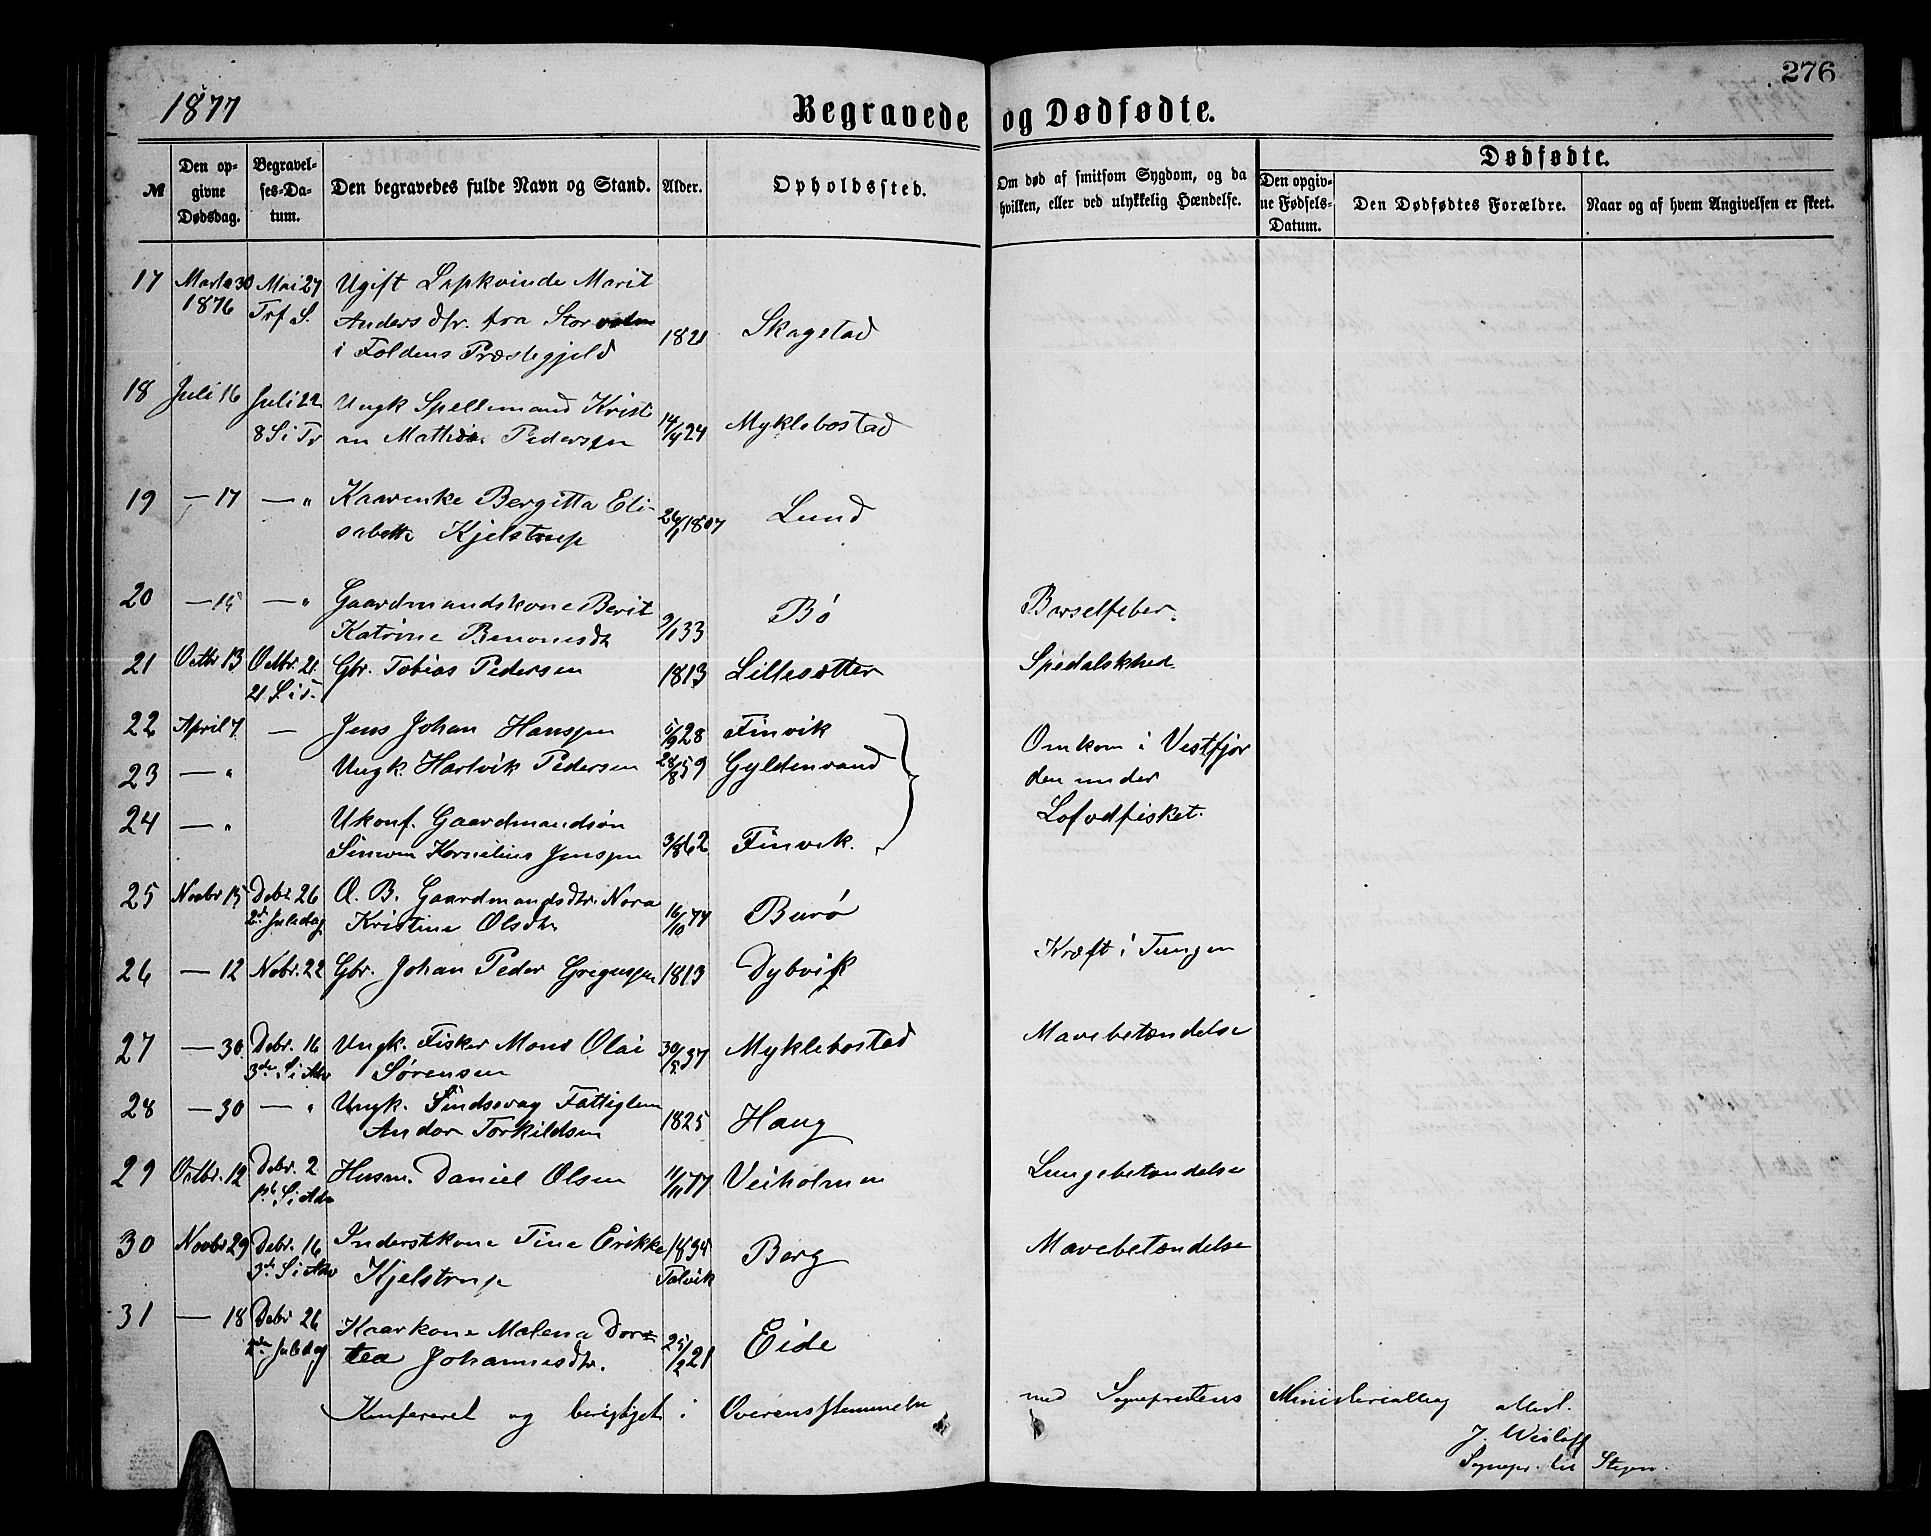 276
1877 Begravede og Dødfødte.
№ Den opgivne Dødsdag. Begravelses-Datum. Den begravedes fulde Navn og Stand. Alder. Opholdssted. Om død af smitsom Sygdom, og da hvilken, eller ved ulykkelig Hændelse. Dødfødte. Den opgivne Fødsels-Datum. Den Dødfødtes Forældre. Naar og af hvem Angivelsen er skeet.
17 Marts 30 Mai 27 Ugift Lapkvinde Marit
1876 Trf S. Anders dtr. fra Storvatn 1821 Skagstad
i Foldens Præstegjeld
18 Juli 16 Juli 22 Ungk Spellemand Krist
8 S i Tr an Mathias Pedersen 14/4 24 Myklebostad
19 — 17 — " Kaarenke Bergitta Eli-
sabeth Kjelstrup 26/1 1807 Lund
20 — 15 — " Gaardmandskone Berit Bø Barselfeber.
Katrine Benonisdtr 9/1 33
21 Octbr 13 Octbr. 21 Gbr. Tobias Pedersen 1813 Lillesætter Spedalskhed
21 S. i T.
22 April 7 — Jens Johan Hanssen 5/9 28 Finvik Omkom i Vestfjor
23 — " Ungk. Hartvik Pedersen 28/8 59 Gyldenvand den under
24 — " Ukonf. Gaardmandsøn Lofodfisket.
Simon Kornelius Jenssen 3/8 62 Finvik.
25 Novbr 15 Debr. 26 Æ. B. Gaardmandsdtr. Nora
2d Juledag Kristine Olsdtr 16/10 77 Burø
26 — 12 Nobr. 22 Gbr. Johan Peder Gregussen 1813 Dybvik Kræft i Tungen
27 — 30 Debr. 16 Ungk. Fisker Mons Olai 30/5 37 Myklebostad Mavebetændelse
3de S i Adv Sørensen
28 — 30 — " Ungk. Sindssvag Fattiglem 1825 Haug "
Andor Torkildsen
29 Octbr. 12 Debr. 2 Husm. Daniel Olsen 11/11 77 Veiholmen Lungebetændelse
1st S i Adv
30 Novbr 29 Debr. 16 Inderstkone Tine Erikke 1834 Borg Mavebetændelse
3de S i Adv Kjelstrup Talvik
31 — 18 Debr 26 Kaarkone Malena Dor=
2den Juledag tea Johannesdtr. 25/2 21 Eide
Konfereret og berigtiget i Overensstemmelse med Sognepræstens Ministerialbog attest.
J. Wisløff
Sognepr. til Stegen.